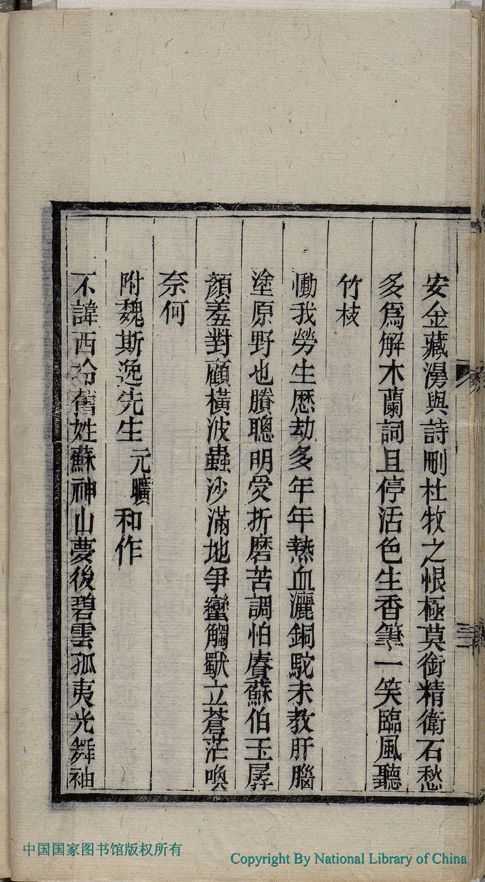 安金藏漫與詩刪杜牧之恨極莫銜精衛石愁
多爲解木蘭詞且停活色生香筆一笑臨風聽
竹枝
慟我勞生歷劫多年年熱血灑銅駝未教肝腦
塗原野也賸聰明受折磨苦調怕賡蘇伯玉孱
顏羞對顧橫波蟲沙滿地爭蠻觸獸立蒼茫喚
奈何
附魏斯逸先生元曠和作
不諱西泠舊姓蘇神山夢後碧雲孤夷光舞袖
中国国家图书馆版权所有
Copyright By National Library of China